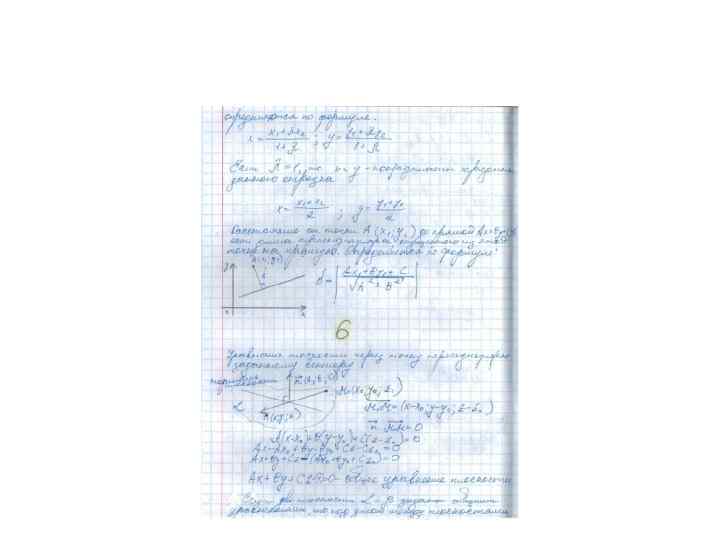 определяются по формуле.
x = x₁+λx₂ / 1+λ ; y = y₁+λy₂ / 1+λ
Если λ=1, то x и y - координаты середины
данного отрезка
x = x₁+x₂ / 2 ; y = y₁+y₂ / 2
Расстояние от точки A(x₁ y₁) до прямой
есть длина перпендикуляра опущенного из этой
точки на прямую. Определяется по формуле:
y
x
d = | Ax₁+By₁+C / √A²+B² |
6
Уравнение плоскости через точку перпендикулярно
заданному вектору
n (A, B, C)
M₀(x₀, y₀, z₀)
α
M₀M=(x-x₀, y-y₀, z-z₀)
n · M₀M=0
A(x-x₀)+B(y-y₀)+C(z-z₀)=0
Ax-Ax₀+By-By₀+Cz-Cz₀=0
Ax+By+Cz-(Ax₀+By₀+Cz₀)=0
общее уравнение плоскости
Если две плоскости α и β заданы общими
уравнениями, то под углом между плоскостями